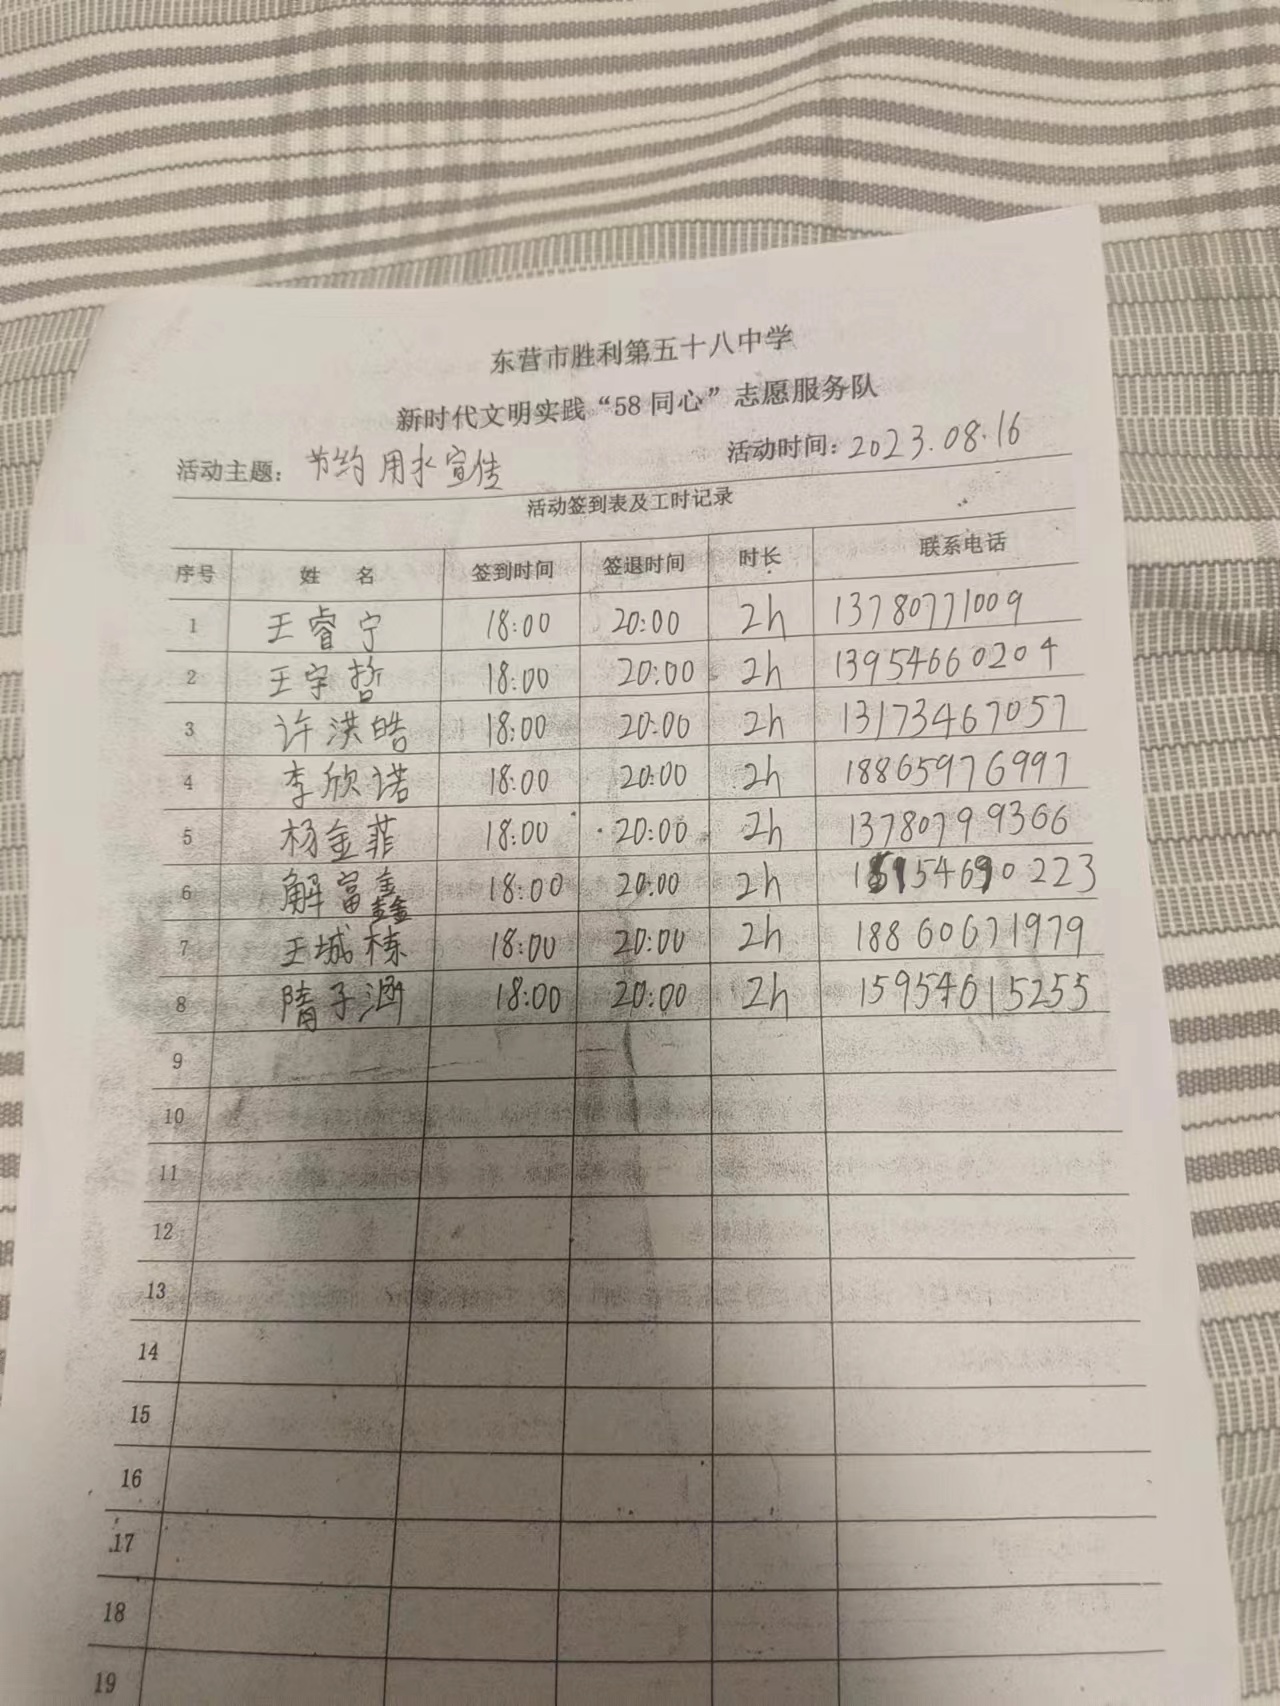 东营市胜利第五十八中学
新时代文明实践“58同心”志愿服务队
活动主题：节约用水宣传 活动时间：2023.08.16
活动签到表及工时记录
序号 姓 名 签到时间 签退时间 时长 联系电话
1 王睿宁 18:00 20:00 2h 13780771009
2 王宇哲 18:00 20:00 2h 13954660204
3 许洪皓 18:00 20:00 2h 13173467057
4 李欣诺 18:00 20:00 2h 18865976997
5 杨金菲 18:00 20:00 2h 13780799366
6 解富鑫 18:00 20:00 2h
7 王城栋 18:00 20:00 2h 18860671979
8 隋子涵 18:00 20:00 2h 15954615255
9
10
11
12
13
14
15
16
17
18
19